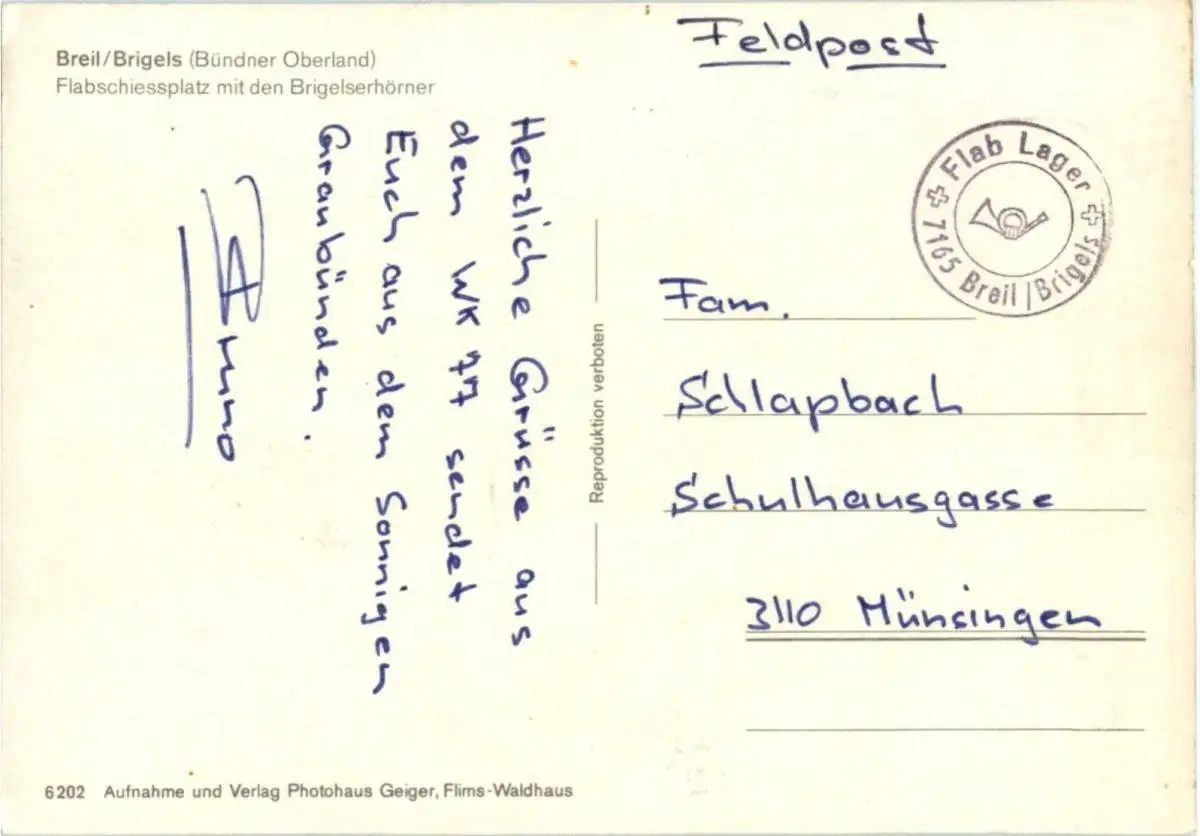 Breil/Brigels (Bündner Oberland)
Flabschiessplatz mit den Brigelserhörner
Herzliche Grüsse aus
dem WK 77 sendet
Euch aus dem Sonnigen
Graubünden.
Bruno
Reproduktion verboten
6202 Aufnahme und Verlag Photohaus Geiger, Flims-Waldhaus
Feldpost
Flab Lager
7165 Breil/Brigels
Fam.
Schlapbach
Schulhausgasse
3110 Münsingen